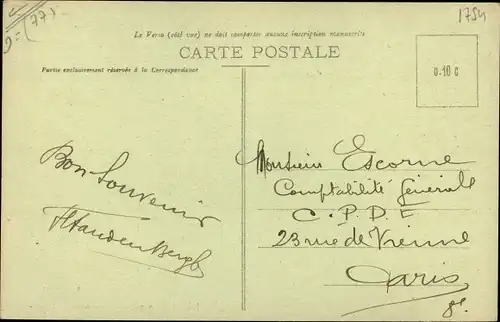 (77)
1754
Le Verso (côté vue) ne doit comporter aucune inscription manuscrite
CARTE POSTALE
Partie exclusivement réservée à la Correspondance
0.10 c
Bon Souvenir
Monsieur Escorne
Comptabilité Générale
C.P.D.E
23 rue de Vienne
Paris